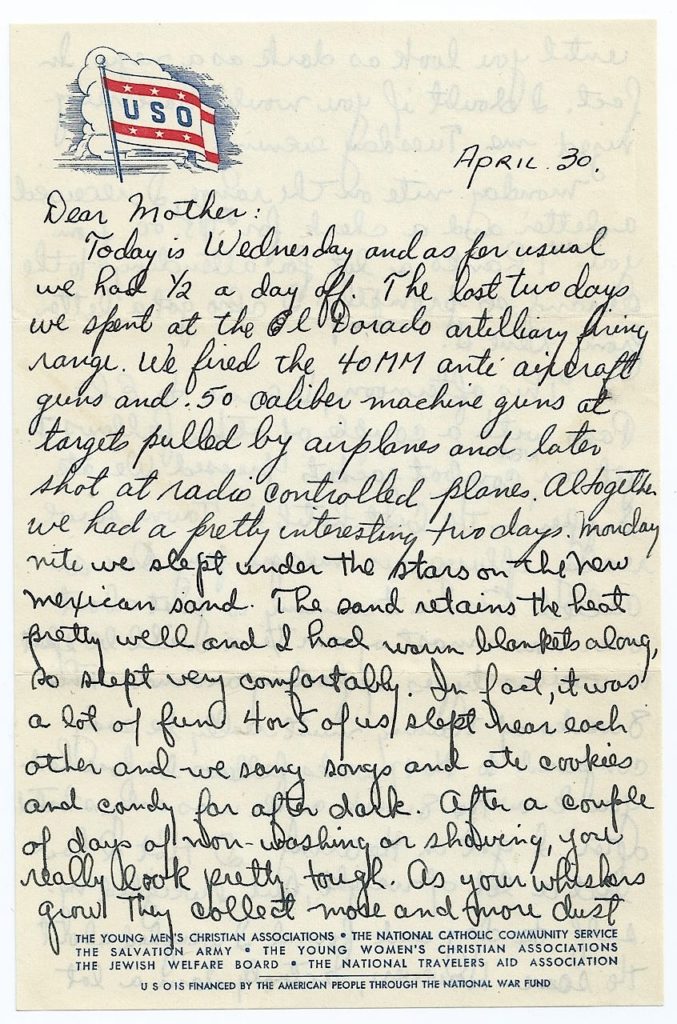 USO
APRIL 30.
Dear Mother:
Today is Wednesday and as per usual
we had ½ a day off. The last two days
we spent at the El Dorado artilliary firing
range. We fired the 40MM anti aircraft
guns and .50 caliber machine guns at
targets pulled by airplanes and later
shot at radio controlled planes. Altogether
we had a pretty interesting two days. Monday
nite we slept under the stars on the New
Mexican sand. The sand retains the heat
pretty well and I had warm blankets along,
so slept very comfortably. In fact, it was
a lot of fun. 4 or 5 of us slept near each
other and we sang songs and ate cookies
and candy far after dark. After a couple
of days of non-washing or shaving, you
really look pretty tough. As your whiskers
grow they collect more and more dust
THE YOUNG MEN'S CHRISTIAN ASSOCIATIONS • THE NATIONAL CATHOLIC COMMUNITY SERVICE
THE SALVATION ARMY • THE YOUNG WOMEN'S CHRISTIAN ASSOCIATIONS
THE JEWISH WELFARE BOARD • THE NATIONAL TRAVELERS AID ASSOCIATION
U S O IS FINANCED BY THE AMERICAN PEOPLE THROUGH THE NATIONAL WAR FUND